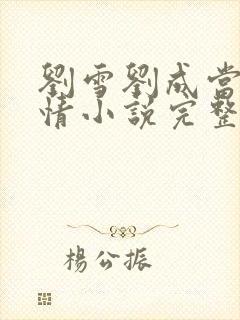 劉雪劉成當
情小說完整
楊公振